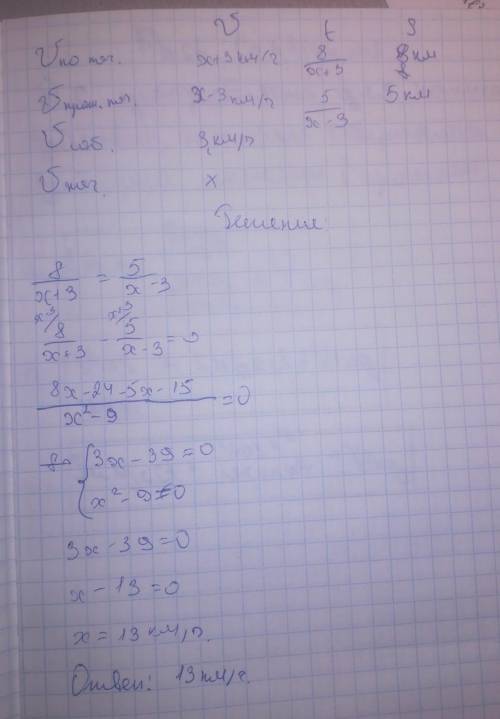 V t S
V по теч. x+3 км/ч 8/(x+3) 8 км
V прот. теч. x-3 км/ч 5/(x-3) 5 км
V соб. 3 км/ч
V теч. x
Решение
8/(x+3) = 5/(x-3)
x-3/ 8/(x+3) - x+3/ 5/(x-3) = 0
(8x-24-5x-15)/(x²-9) = 0
{3x-39=0
x²-9≠0
3x-39=0
x-13=0
x=13 км/ч.
Ответ: 13 км/ч.